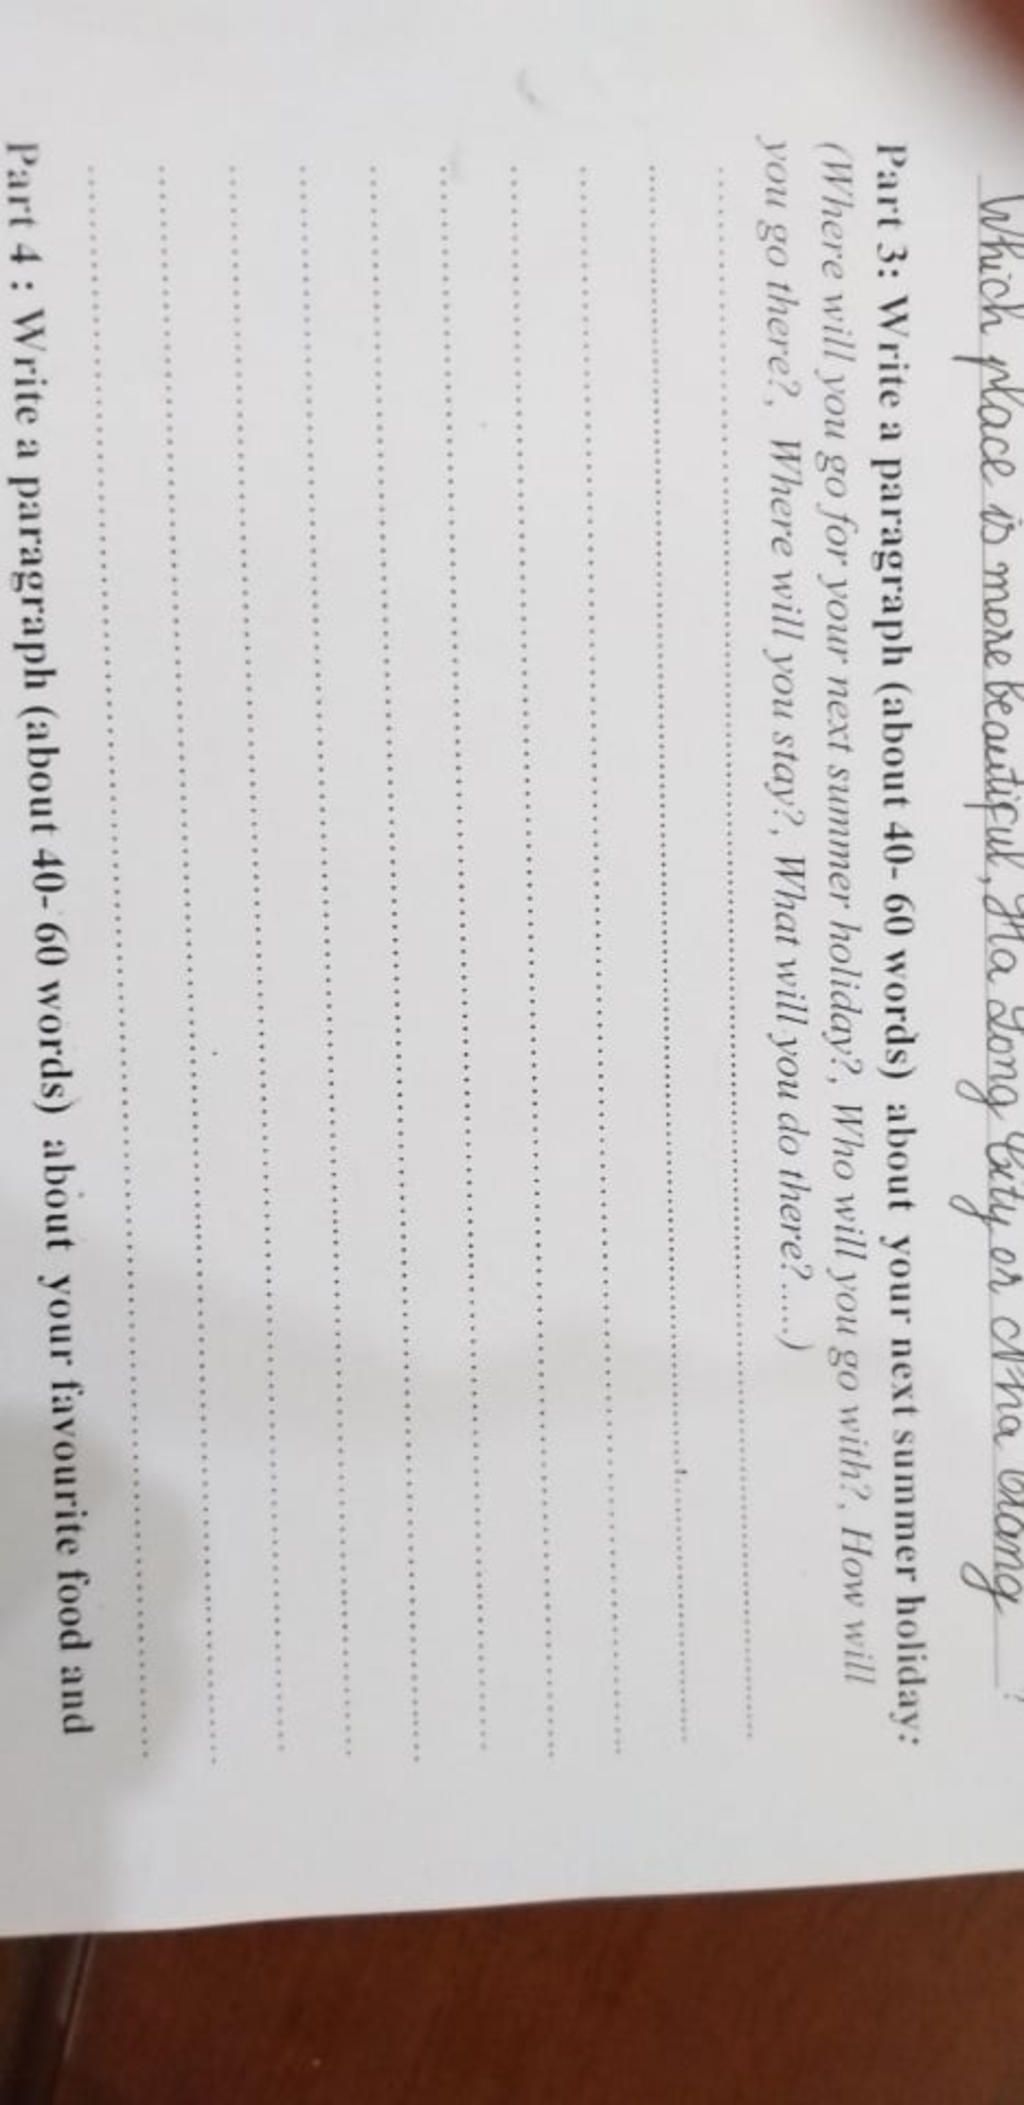 Which place is more beautiful, Ha Long City or Nha Trang ?
Part 3: Write a paragraph (about 40- 60 words) about your next summer holiday:
(Where will you go for your next summer holiday?, Who will you go with?, How will
you go there?, Where will you stay?, What will you do there?....)
Part 4 : Write a paragraph (about 40- 60 words) about your favourite food and